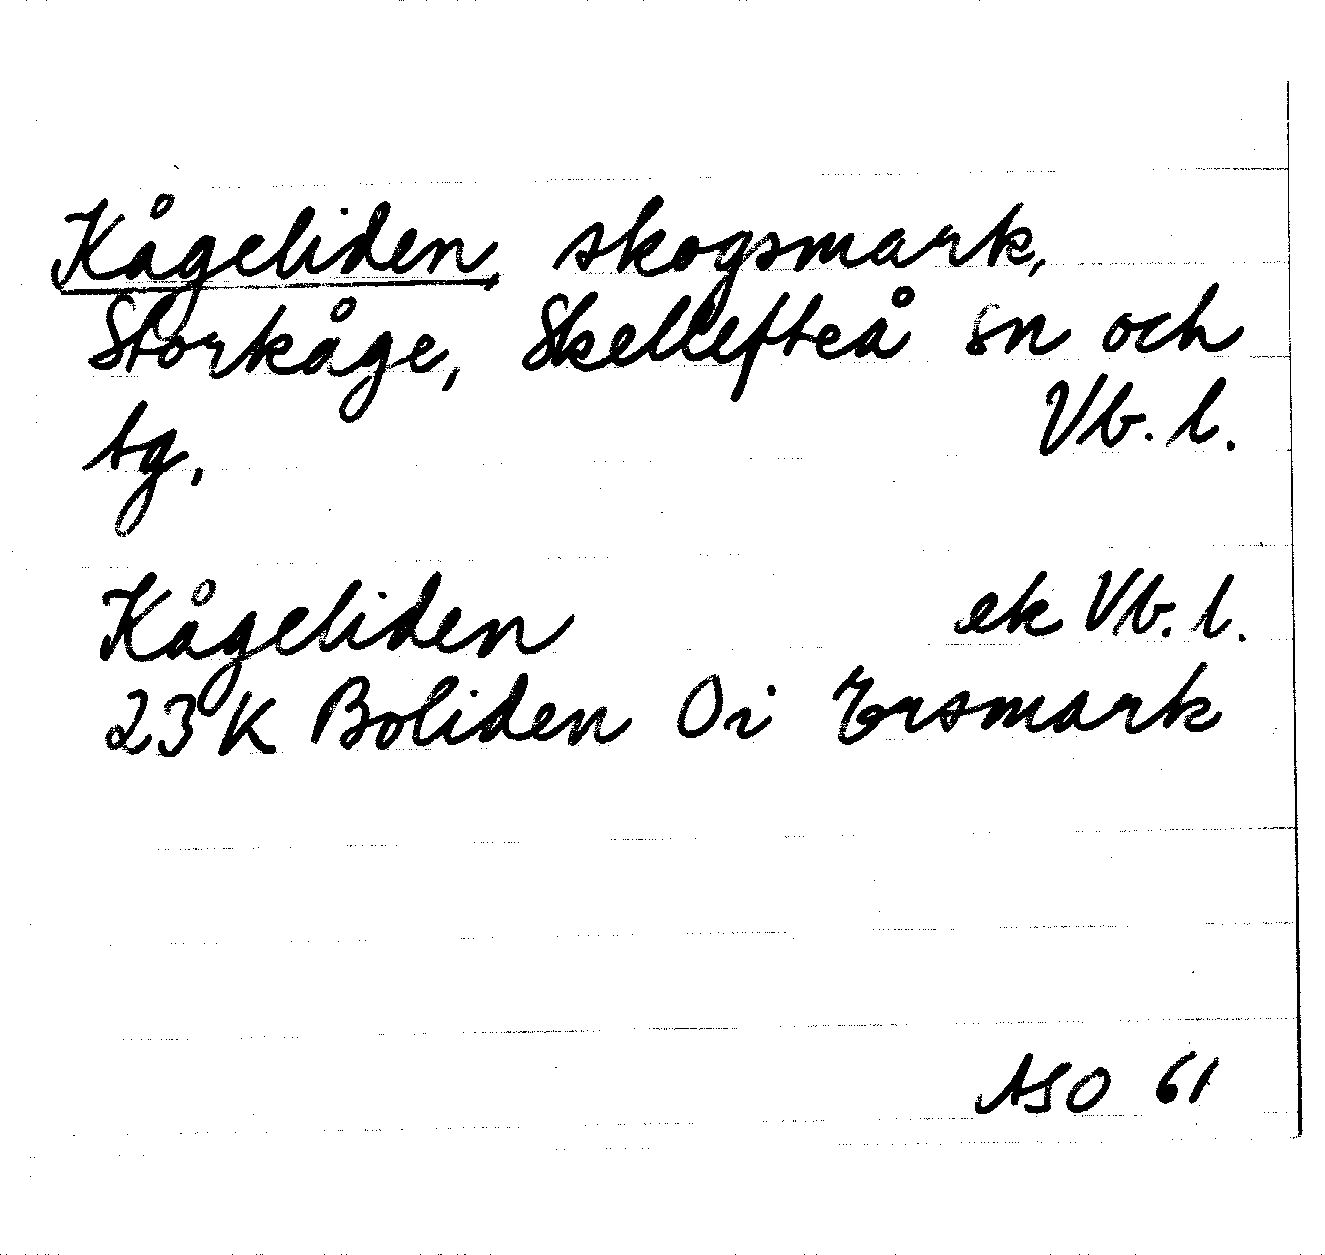 Kågeliden, skogsmark,
Storkåge, Skellefteå sn och
tg, Vb. l.
Kågeliden ek Vb. l.
23K Boliden Oi Ersmark
ASO 61